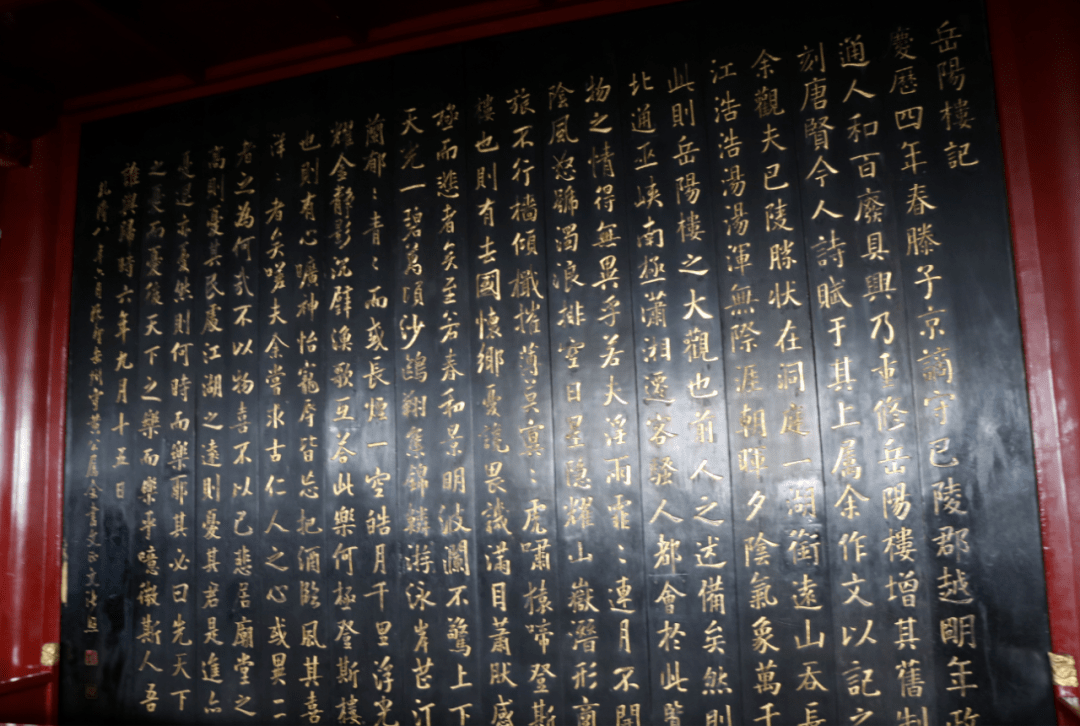 岳陽樓記
慶歷四年春滕子京謫守巴陵郡越明年政
通人和百廢具興乃重修岳陽樓增其舊制
刻唐賢今人詩賦于其上屬余作文以記之
余觀夫巴陵勝狀在洞庭一湖銜遠山吞長
江浩浩湯湯渾無際涯朝暉夕陰氣象萬千
此則岳陽樓之大觀也前人之述備矣然則
北通巫峽南極瀟湘遷客騷人都會於此覽
物之情得無異乎若夫淫雨霏〻連月不開
陰風怒號濁浪排空日星隱耀山嶽潛形商
旅不行檣傾檝摧薄暮冥〻虎嘯猿啼登斯
樓也則有去國懷鄉憂讒畏譏滿目蕭然感
極而悲者矣至若春和景明波瀾不驚上下
天光一碧萬頃沙鷗翔集錦鱗游泳岸芷汀
蘭郁〻青〻而或長煙一空皓月千里浮光
耀金靜影沉璧漁歌互答此樂何極登斯樓
也則有心曠神怡寵辱皆忘把酒臨風其喜
洋〻者矣嗟夫余嘗求古仁人之心或異二
者之為何哉不以物喜不以己悲居廟堂之
高則憂其民處江湖之遠則憂其君是進亦
憂退亦憂然則何時而樂耶其必曰先天下
之憂而憂後天下之樂而樂乎噫微斯人吾
誰與歸時六年九月十五日
乾隆八年六月岳州守黃公屬余書文張照